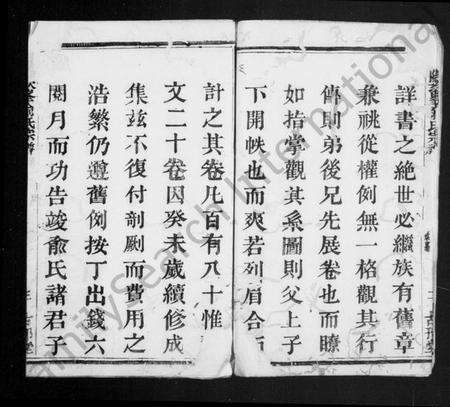 詳書之絶世必繼族有舊章
兼祧從權例無一格觀其行
傳則弟後兄先展卷也而瞭
如指掌觀其系圖則父上子
下開帙也而爽若列眉合而
計之其卷凡百有八十惟
文二十卷因癸未歲續修成
集茲不復付剞劂而費用之
浩繁仍遵舊例按丁出錢六
閱月而功告竣俞氏諸君子
FamilySearch International